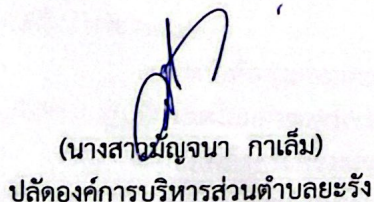 (นางสาวมัญจนา กาเล็ม)
ปลัดองค์การบริหารส่วนตำบลยะรัง